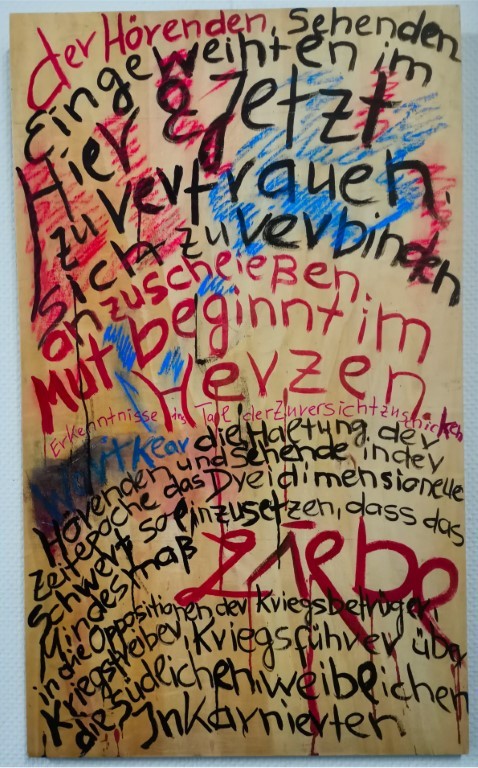 der Hörenden, Sehenden
Eingeweihten im
Hier & Jetzt
zu vertrauen,
sich zu verbinden
anzuscheießen.
Mut beginnt im
Herzen.
Erkenntnisse ins Tal der Zuversicht zu schicken
die Haltung der
Hörenden und Sehende in der
Zeitepoche das Dreidimensionelle
Schwert so einzusetzen, dass das
Mindestmaß
Liebe
in die Oppositionen der Kriegsbetrüger,
Kriegstreiber, Kriegsführer über
die Südlichen, weiblichen
Inkarnierten